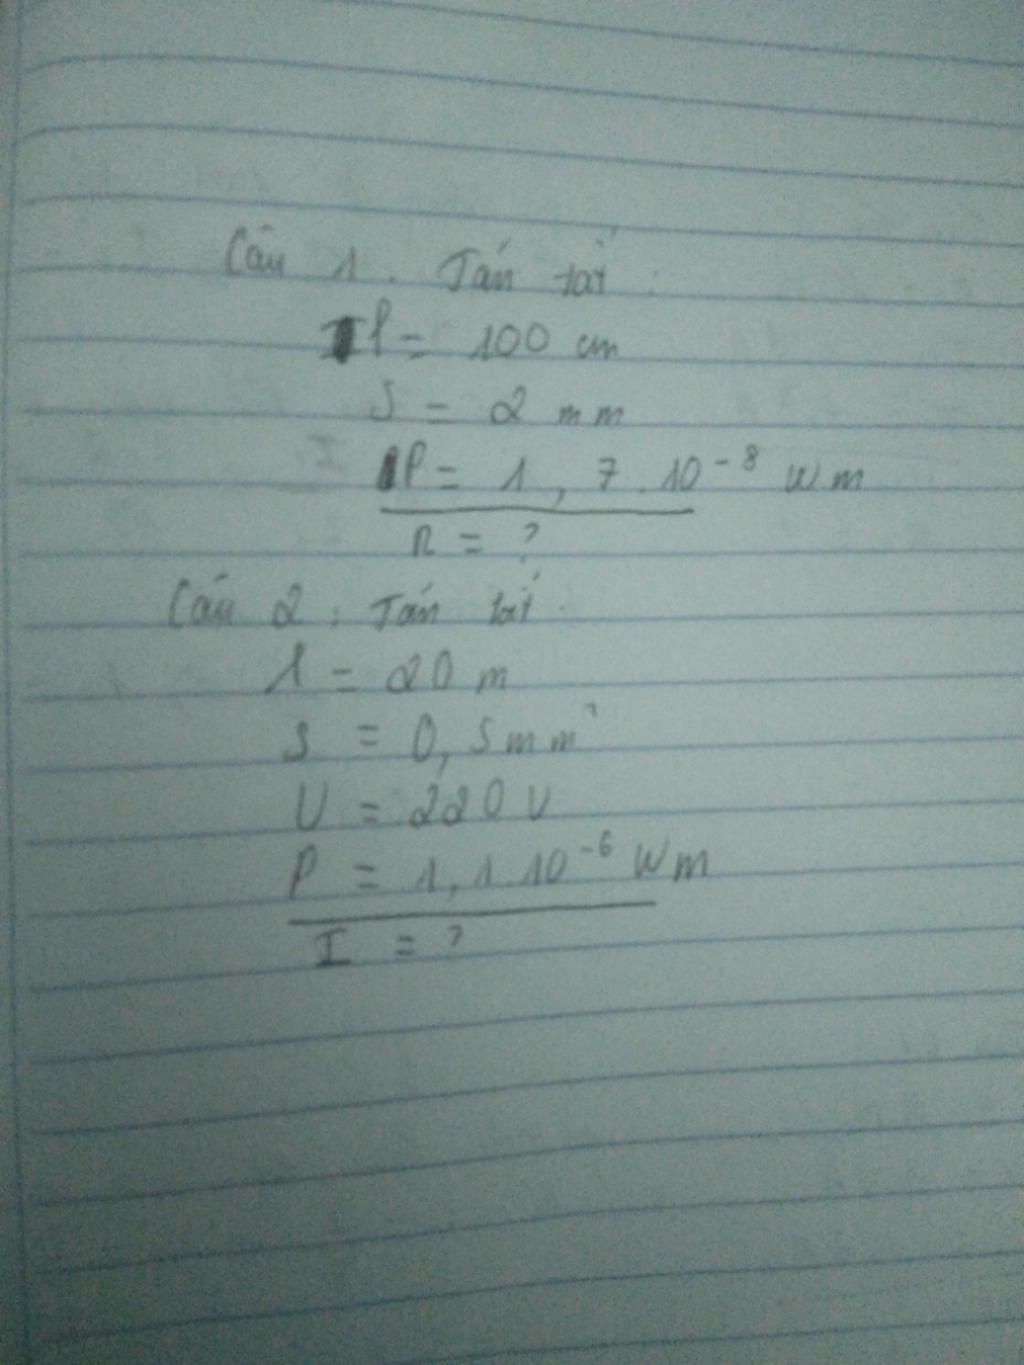 Câu 1. Tóm tắt:
l = 100 cm
S = 2 mm
P = 1,7.10⁻⁸ Wm
R = ?
Câu 2: Tóm tắt.
l = 20 m
S = 0,5mm²
U = 220 V
P = 1,1.10⁻⁶ Wm
I = ?